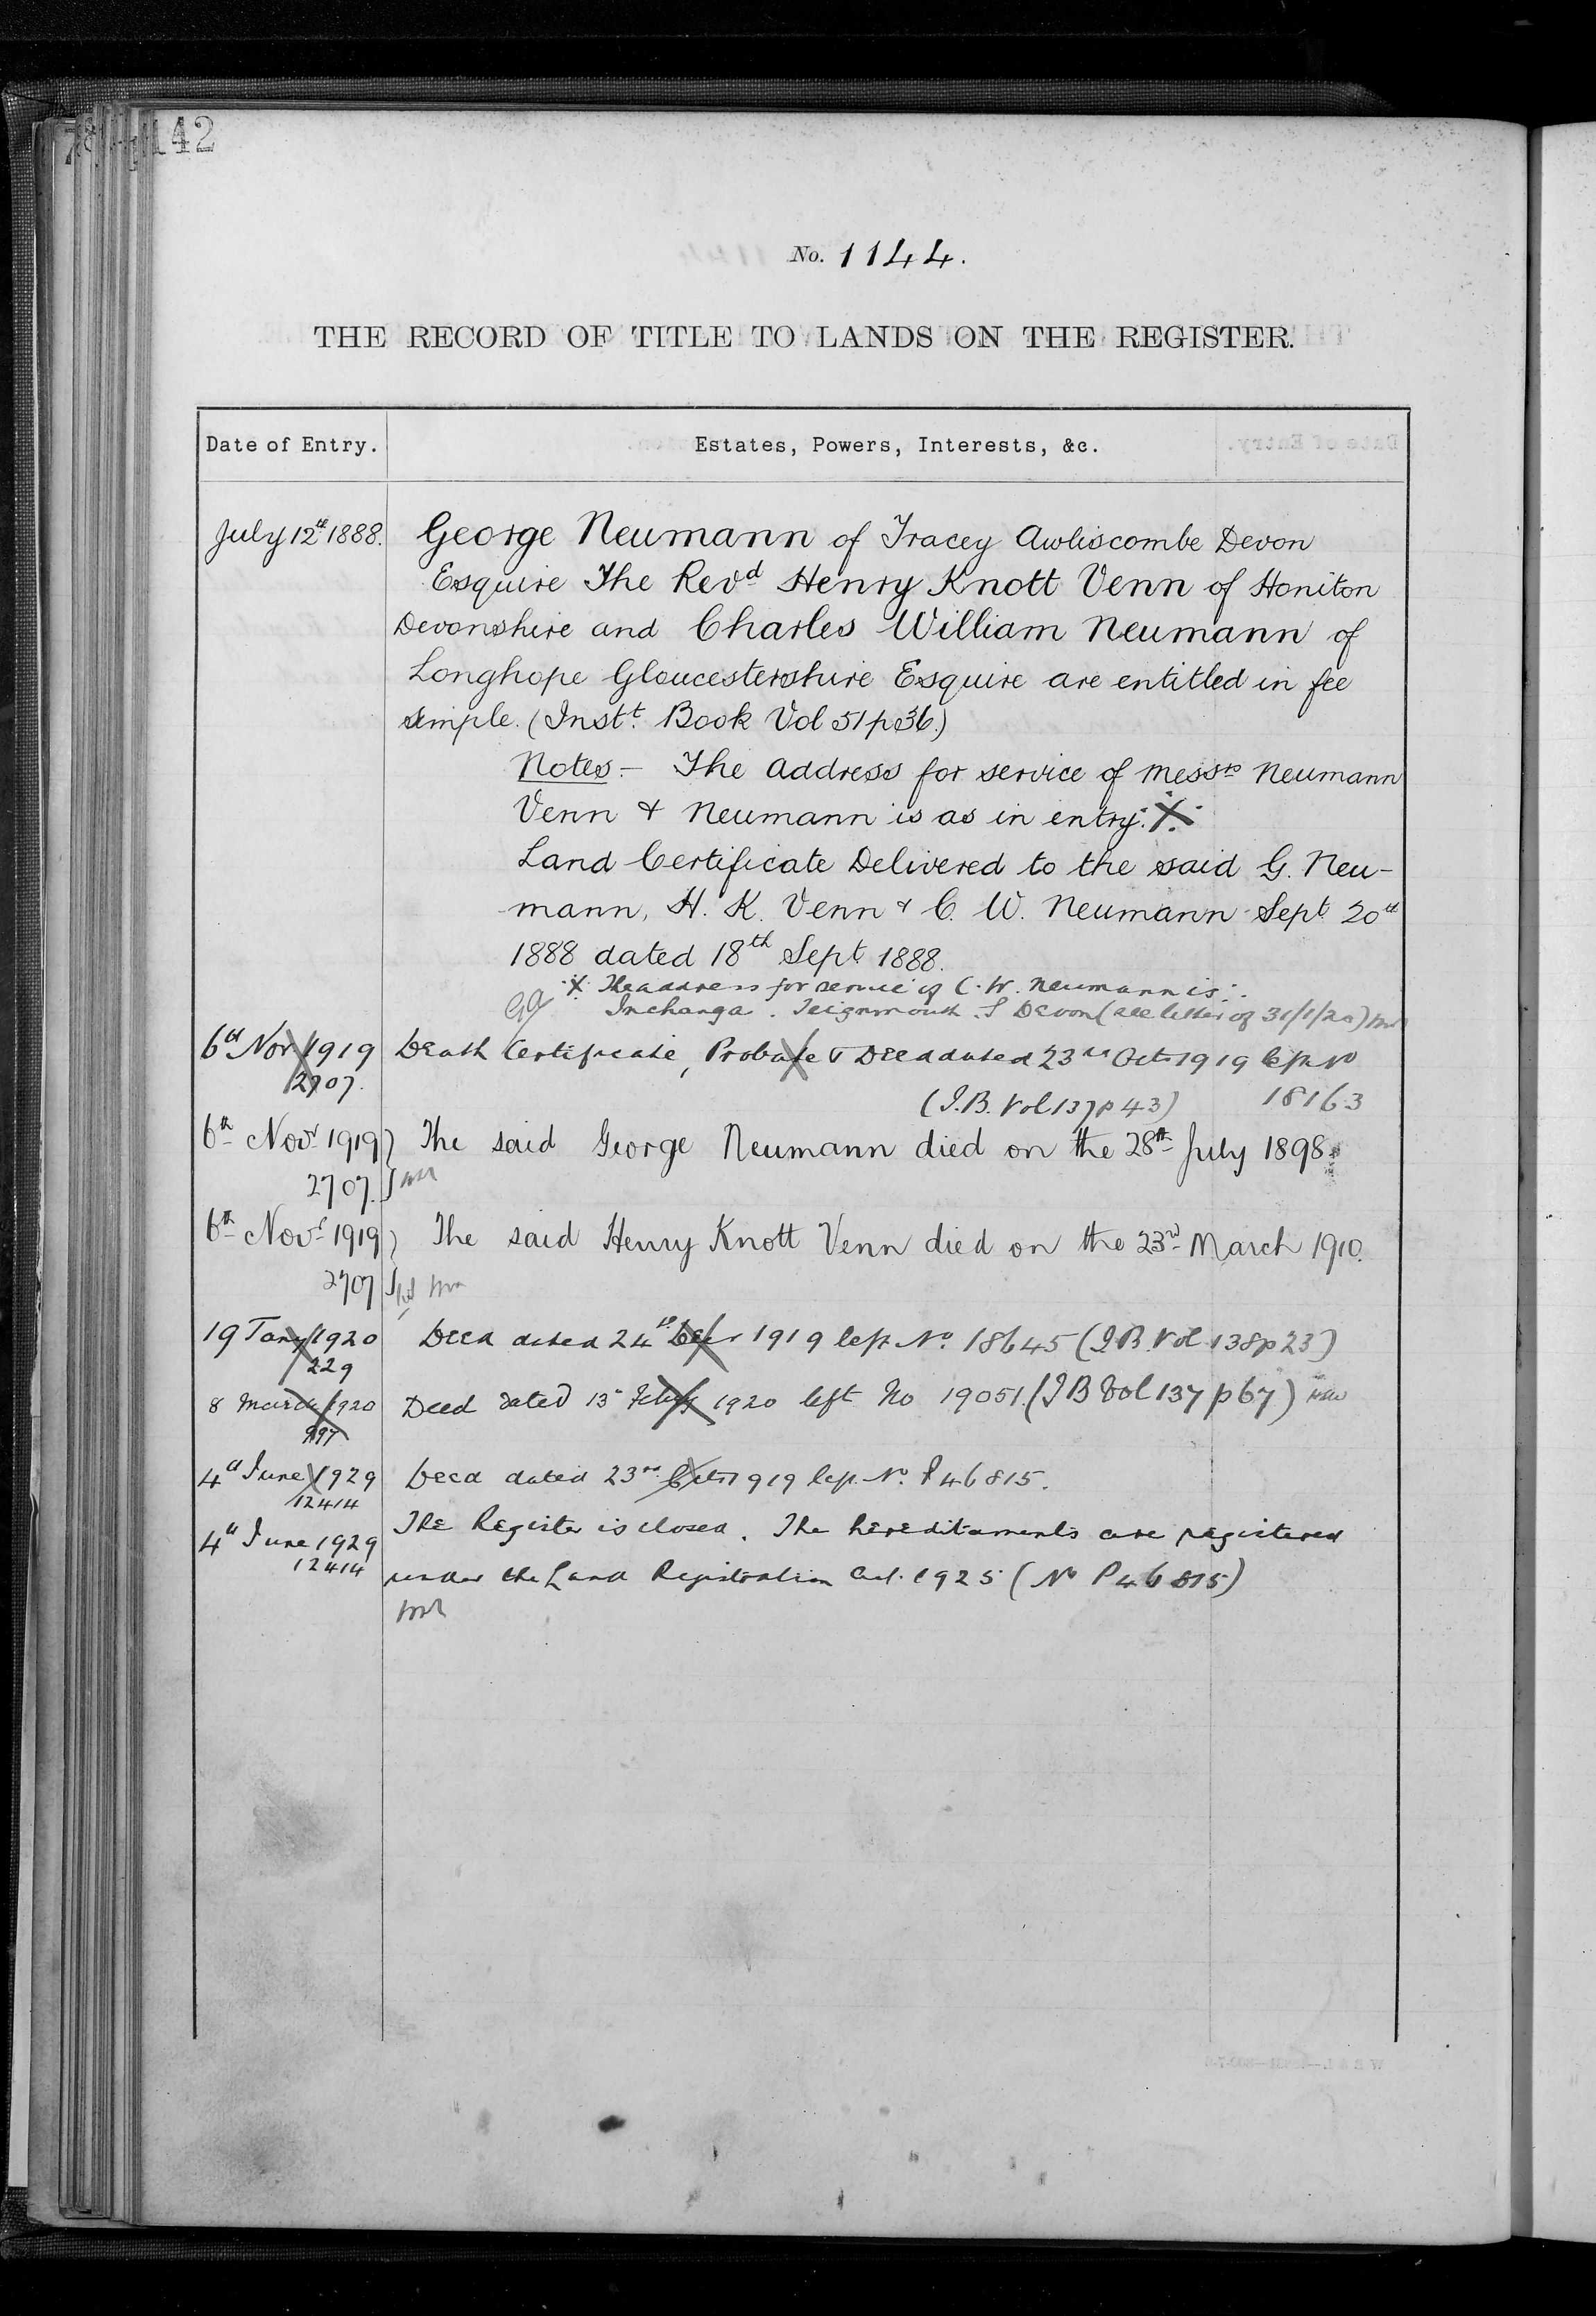 142
No. 1144.
THE RECORD OF TITLE TO LANDS ON THE REGISTER.
Date of Entry.
Estates, Powers, Interests, &c.
July 12th 1888.
George Neumann of Tracey Awliscombe Devon
Esquire The Revd Henry Knott Venn of Honiton
Devonshire and Charles William Neumann of
Longhope Gloucestershire Esquire are entitled in fee
simple. (Instt. Book Vol 51 p 36.)
Notes - The address for service of Messrs Neumann
Venn & Neumann is as in entry. X
Land Certificate Delivered to the said G. Neu-
mann, H. K. Venn & C. W. Neumann Sept 20th
1888 dated 18th Sept 1888.
X The address for service of C. W. Neumann is:-
Inchanga. Teignmouth. S Devon (see letter of 31/1/20)
6th Nov 1919
2707.
Death Certificate, Probate & Deed dated 23rd Oct 1919 left No
18163
(I.B. Vol 137 p 43)
6th Novr 1919
2707.
The said George Neumann died on the 28th July 1898.
6th Novr 1919
2707
The said Henry Knott Venn died on the 23rd March 1910.
19 Jany 1920
229
Deed dated 24th Decr 1919 left No. 18645 (I.B. Vol 138 p 23)
8 March 1920
997
Deed dated 13th Feby 1920 left No 19051. (I B Vol 137 p 67)
4th June 1929
12414
Deed dated 23rd Oct 1919 left No. P46815.
4th June 1929
12414
The Register is closed. The hereditaments are registered
under the Land Registration Act. 1925 (No P46815)